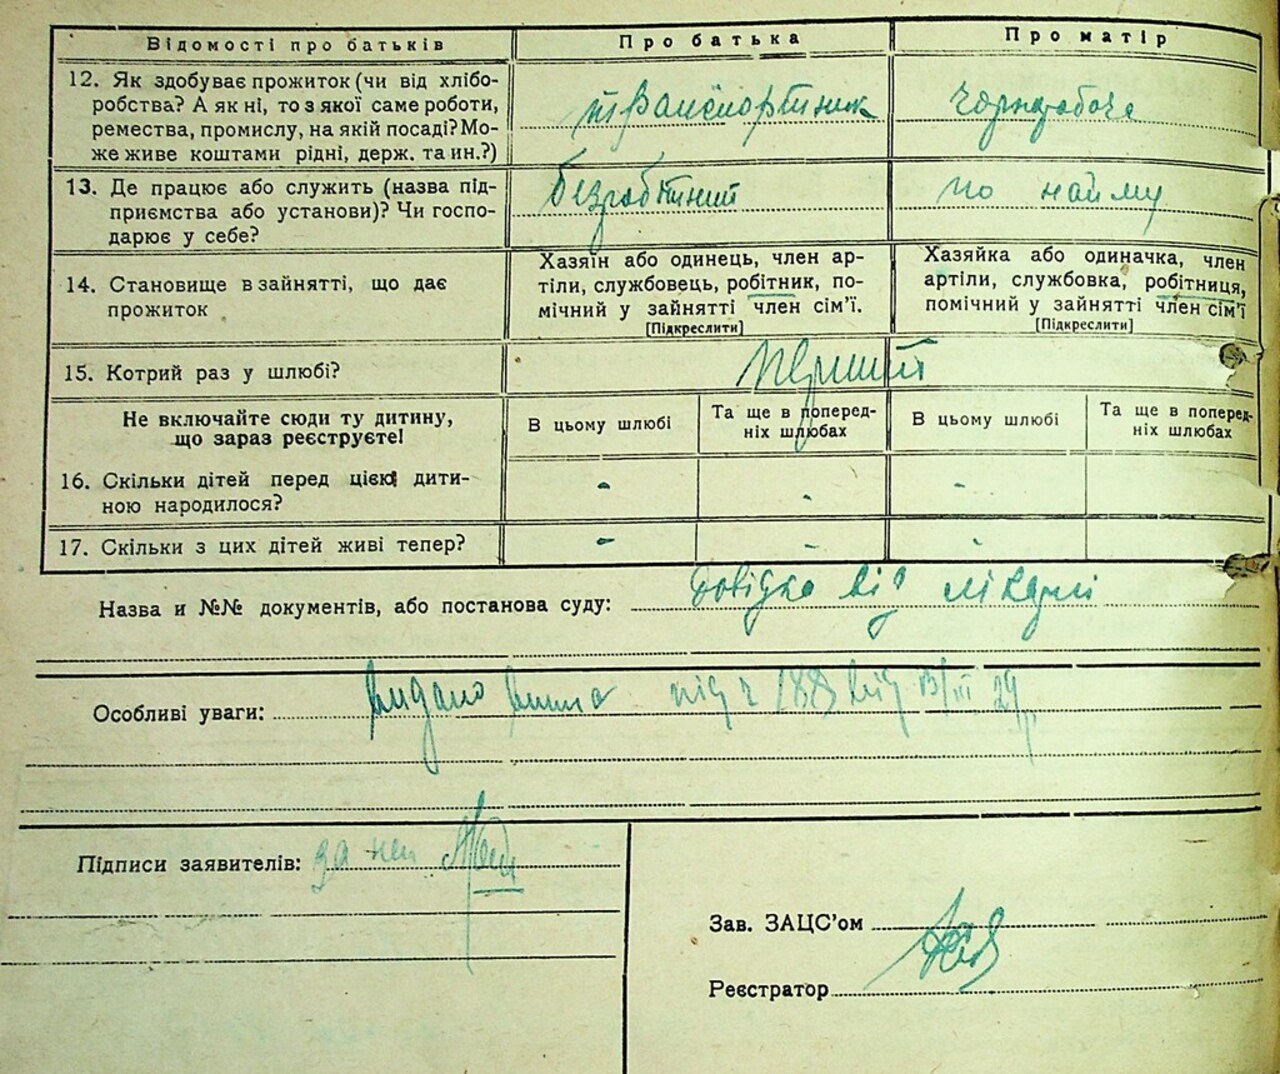 Відомості про батьків
Про батька
Про матір
12. Як здобуває прожиток (чи від хлібо-
робства? А як ні, то з якої саме роботи,
ремества, промислу, на якій посаді? Мо-
же живе коштами рідні, держ. та ин.?)
транспортник
чорнробоча
13. Де працює або служить (назва під-
приємства або установи)? Чи госпо-
дарює у себе?
безробітний
по найму
14. Становище в зайнятті, що дає
прожиток
Хазяїн або одинець, член ар-
тіли, службовець, робітник, по-
мічний у зайнятті член сім’ї.
[Підкреслити]
Хазяйка або одиначка, член
артіли, службовка, робітниця,
помічний у зайнятті член сім’ї
[Підкреслити]
15. Котрий раз у шлюбі?
перший
Не включайте сюди ту дитину,
що зараз реєструєте!
В цьому шлюбі
Та ще в поперед-
ніх шлюбах
В цьому шлюбі
Та ще в поперед-
ніх шлюбах
16. Скільки дітей перед цією дити-
ною народилося?
- - -
17. Скільки з цих дітей живі тепер?
- - -
Назва и №№ документів, або постанова суду: Довідка від лікарні
Особливі уваги: видано під ч 1883 від /III 29
Підписи заявителів: за
Зав. ЗАЦС’ом
Реєстратор